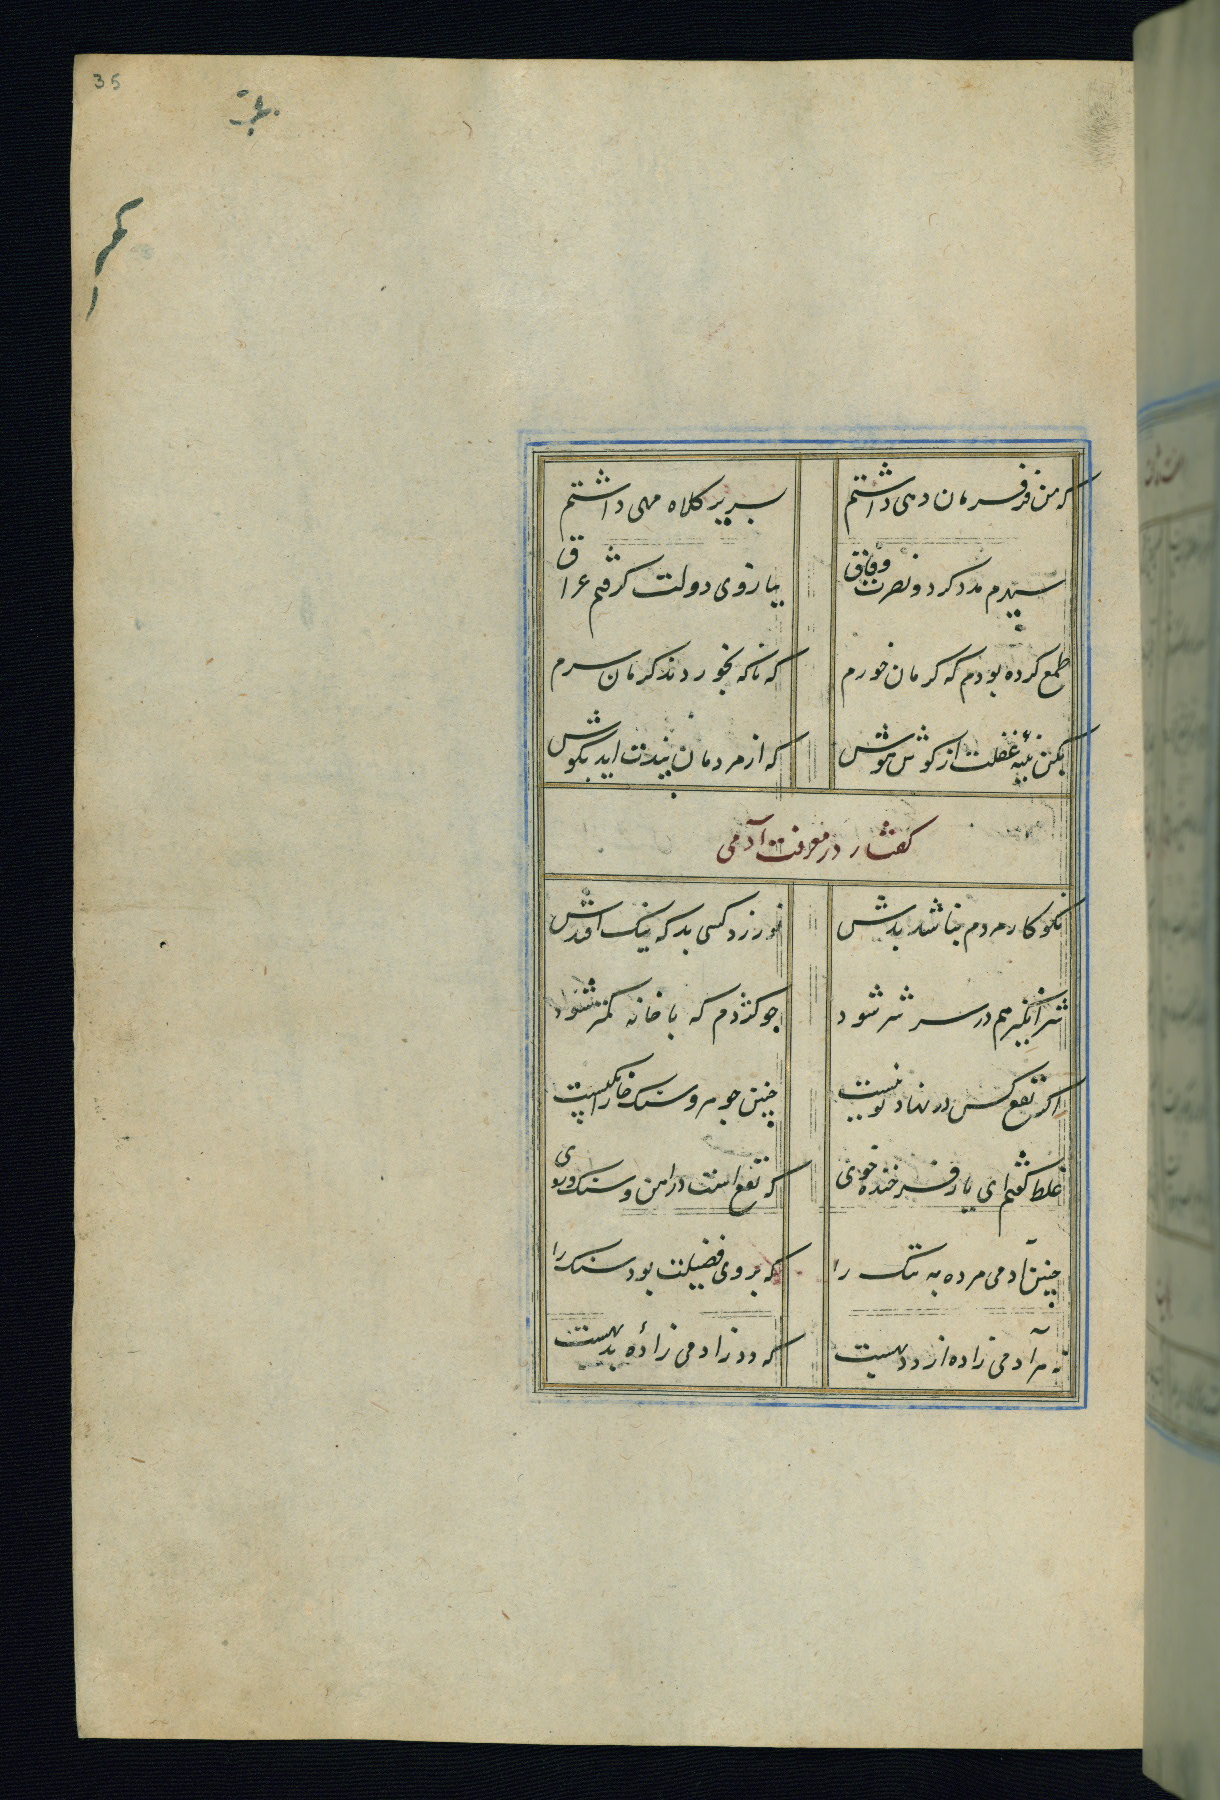 35
که من فر فرمان دهی داشتم بسر بر کلاه مهی داشتم
سپهرم مدد کرد و نصرت وفاق ببازوی دولت گرفتم عراق
طمع کرده بودم که کرمان خورم که ناکه بخوردند کرمان سرم
بکن پنبه غفلت از کوش هوش که از مردمان پندت اید بکوش
کفتار در معرفت آدمی
نکوکار مردم نباشد بدش نورزد کسی بد که نیک افتدش
شرانگیز هم در سر شر شود چو کژدم که با خانه کمتر شود
اکر نفع کس در نهاد تو نیست چنین جوهر و سنک خارا یکیست
غلط کفتم ای یار فرخنده خوی که نفع است در اهن و سنک و روی
چنین آدمی مرده به ننک را که بر وی فضیلت بود سنک را
نه هر آدمی زاده از دد بهست که دد ز ادمی زادهٔ بد بهست